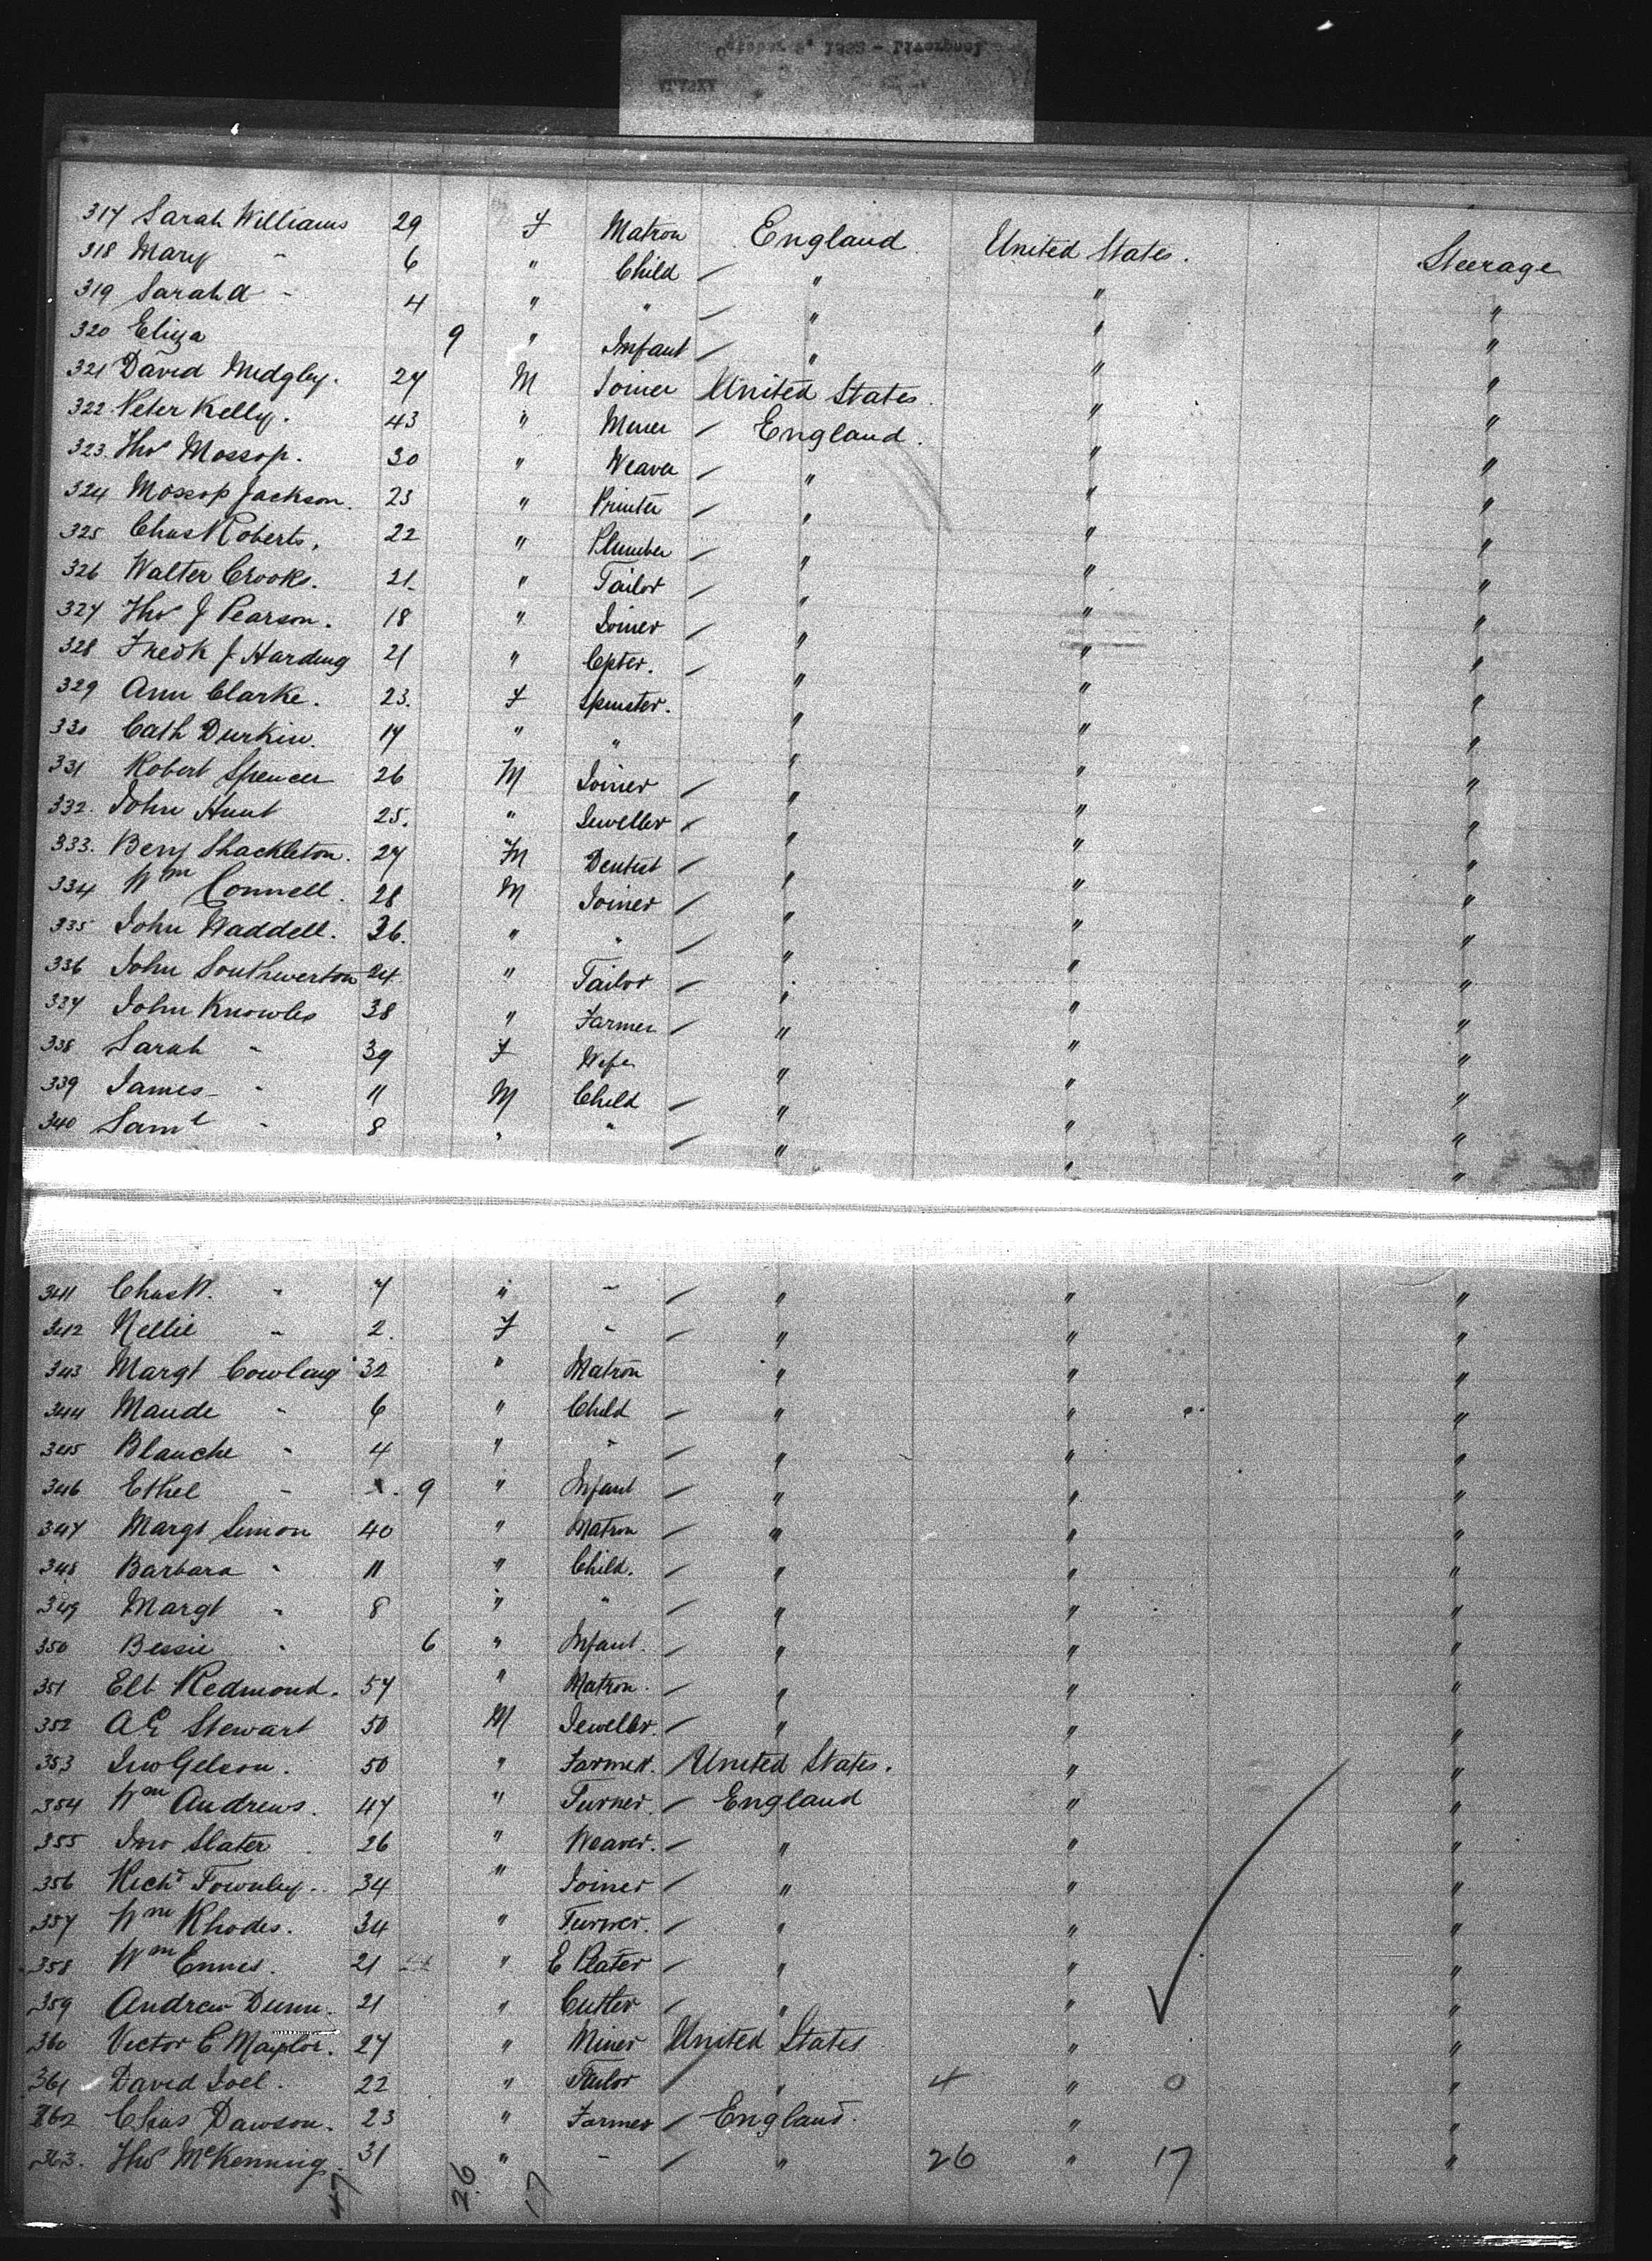 317 Sarah Williams 29 F Matron England United States. Steerage
318 Mary " 6 " Child " " "
319 Sarah A " 4 " " " " "
320 Eliza 9 " Infant " " "
321 David Midgley. 27 M Joiner United States. " "
322 Peter Kelly. 43 " Miner England. " "
323. Thos Mossop. 30 " Weaver " " "
324 Mossop Jackson. 23 " Printer " " "
325 Chas Roberts. 22 " Plumber " " "
326 Walter Crooks. 21 " Tailor " " "
327 Thos J Pearson. 18 " Joiner " " "
328 Fredk J Harding 21 " Cpter. " " "
329 Ann Clarke. 23. F Spinster. " " "
330 Cath Durkin. 17 " " " " "
331 Robert Spencer 26 M Joiner " " "
332. John Hunt 25. " Jeweller " " "
333. Benj Shackleton. 27 M Dentist " " "
334 Wm Connell. 28 M Joiner " " "
335 John Waddell. 36. " " " " "
336 John Southwerton 24 " Tailor " " "
337 John Knowles 38 " Farmer " " "
338 Sarah " 39 F Wife " " "
339 James " 11 M Child " " "
340 Saml " 8 " " " " "
341 Chas W. " 7 " " " " "
342 Nellie " 2. F " " " "
343 Margt Cowling 32 " Matron " " "
344 Maude " 6 " Child " " "
345 Blanche " 4 " " " " "
346 Ethel " 9 " Infant " " "
347 Margt Simon 40 " Matron " " "
348 Barbara " 11 " Child. " " "
349 Margt " 8 " " " " "
350 Bessie " 6 " Infant. " " "
351 Elt Redmond. 57 " Matron. " " "
352 A E Stewart 50 M Jeweller. " " "
353 Jno Gelson. 50 " Farmer. United States. " "
354 Wm Andrews. 47 " Turner. England " "
355 Jno Slater 26 " Weaver. " " "
356 Richd Townley. 34 " Joiner " " "
357 Wm Rhodes. 34 " Turner. " " "
358 Wm Ennis. 21 " E Plater " " "
359 Andrew Dunn. 21 " Cutler " " "
360 Victor C Maylor. 27 " Miner United States " "
361 David Joel. 22 " Tailor " 4 " 0 "
362 Chas Dawson. 23 " Farmer England. " "
363. Thos McKenning. 31 " " " 26 " 17 "
47 26 17